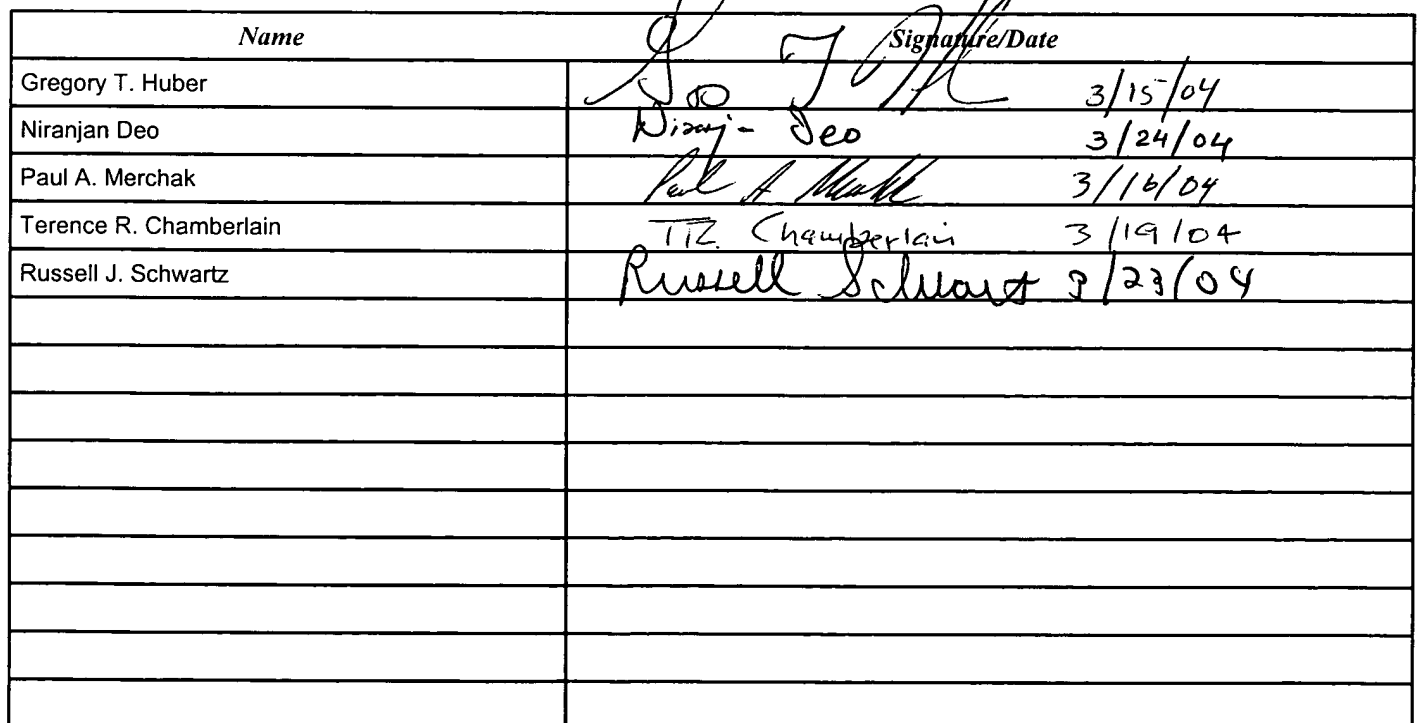 Name Signature/Date
Gregory T. Huber 3/15/04
Niranjan Deo Niranj- Deo 3/24/04
Paul A. Merchak Paul A 3/16/04
Terence R. Chamberlain T R. Chamberlain 3/19/04
Russell J. Schwartz Russell Schwart 3/23/04